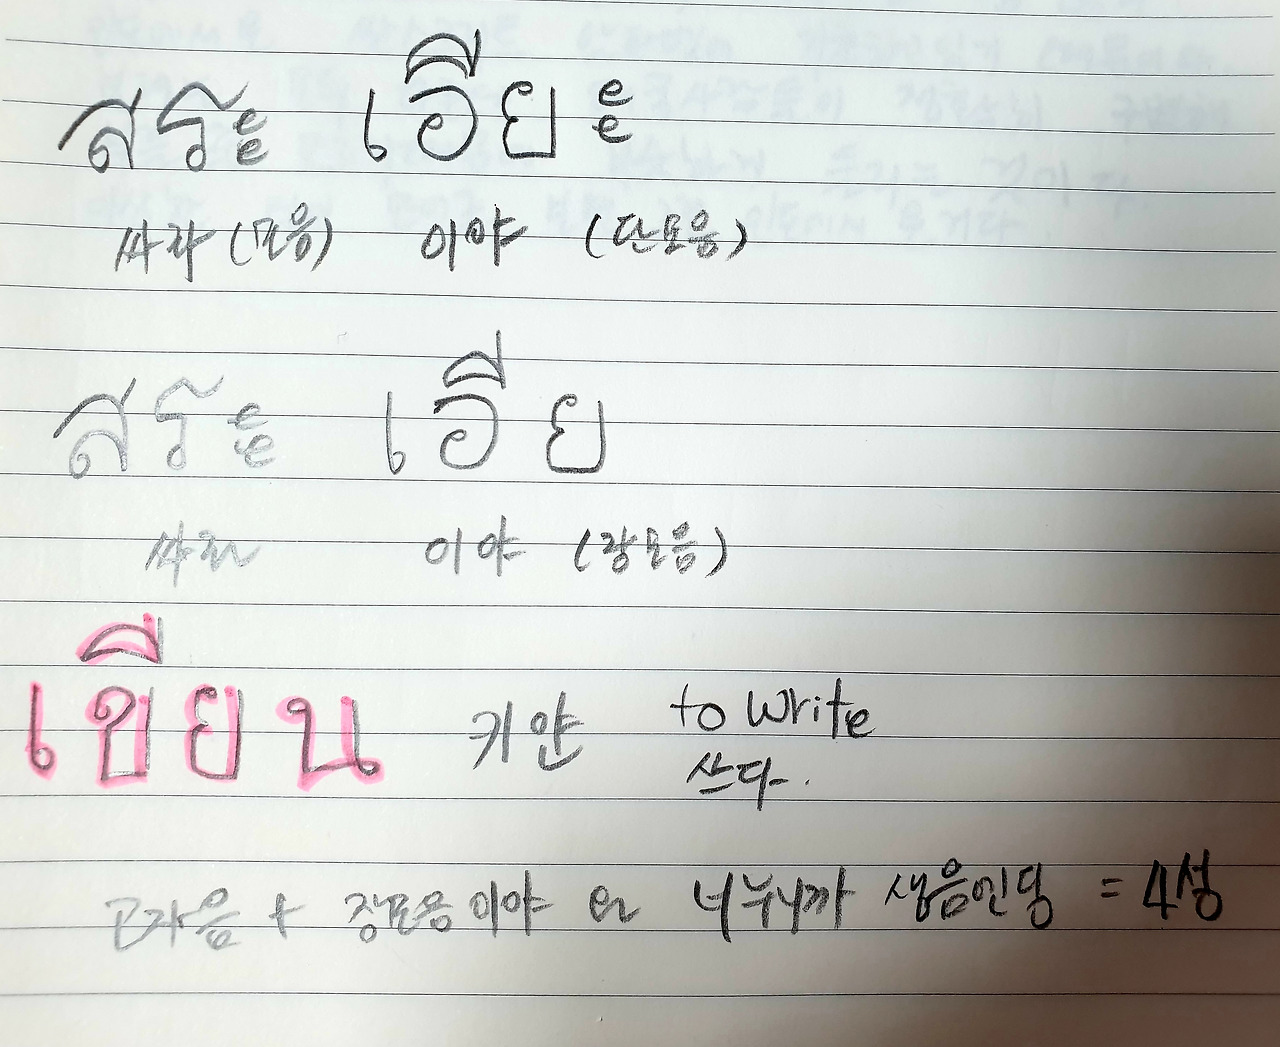 สระ เอียะ
싸라 (모음) 이야 (단모음)
สระ เอีย
싸라 이야 (장모음)
เขียน 키얀 to write
쓰다.
고자음 + 장모음 이야 er 너누까 생음인딩 = 4성